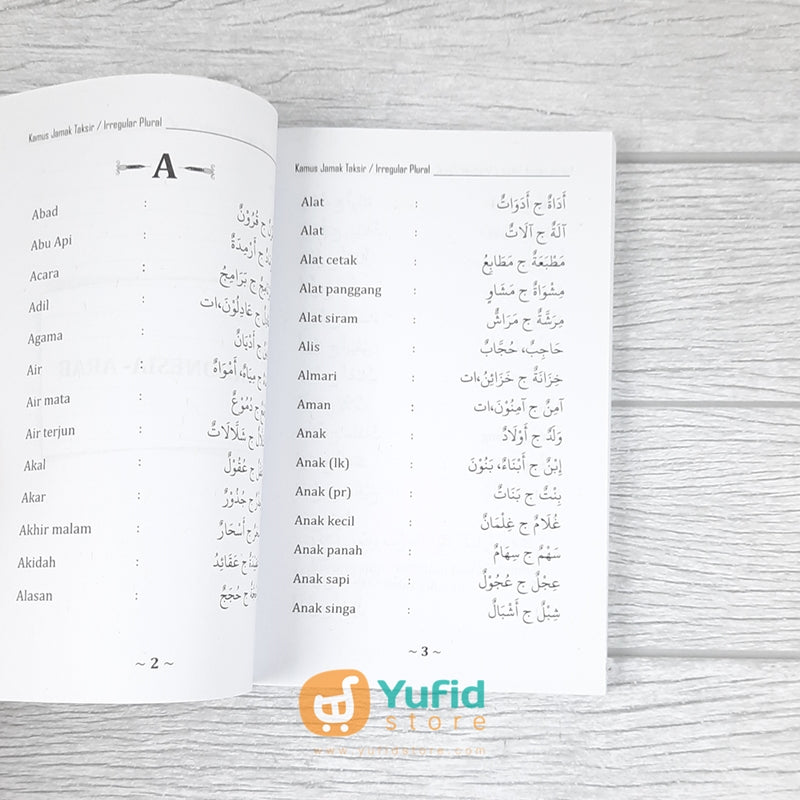 Kamus Jamak Taksir / Irregular Plural
A
Abad : ج قُرُوْنٌ
Abu Api : ج أَرْمِدَةٌ
Acara : ج بَرَامِجُ
Adil : ج عَادِلُوْنَ،ات
Agama : ج أَدْيَانٌ
Air : ج مِيَاهٌ، أَمْوَاهٌ
Air mata : ج دُمُوْعٌ
Air terjun : ج شَلَّالَاتٌ
Akal : ج عُقُوْلٌ
Akar : ج جُذُوْرٌ
Akhir malam : ج أَسْحَارٌ
Akidah : ج عَقَائِدُ
Alasan : ج حُجَجٌ
~ 2 ~
Kamus Jamak Taksir / Irregular Plural
Alat : أَدَاةٌ ج أَدَوَاتٌ
Alat : آلَةٌ ج آلَاتٌ
Alat cetak : مَطْبَعَةٌ ج مَطَابِعُ
Alat panggang : مِشْوَاةٌ ج مَشَاوٍ
Alat siram : مِرَشَّةٌ ج مَرَاشٌّ
Alis : حَاجِبٌ، حُجَّابٌ
Almari : خِزَانَةٌ ج خَزَائِنُ،ات
Aman : آمِنٌ ج آمِنُوْنَ،ات
Anak : وَلَدٌ ج أَوْلَادٌ
Anak (lk) : اِبْنٌ ج أَبْنَاءٌ، بَنُوْنَ
Anak (pr) : بِنْتٌ ج بَنَاتٌ
Anak kecil : غُلَامٌ ج غِلْمَانٌ
Anak panah : سَهْمٌ ج سِهَامٌ
Anak sapi : عِجْلٌ ج عُجُوْلٌ
Anak singa : شِبْلٌ ج أَشْبَالٌ
~ 3 ~
Yufid
store
www.yufidstore.com